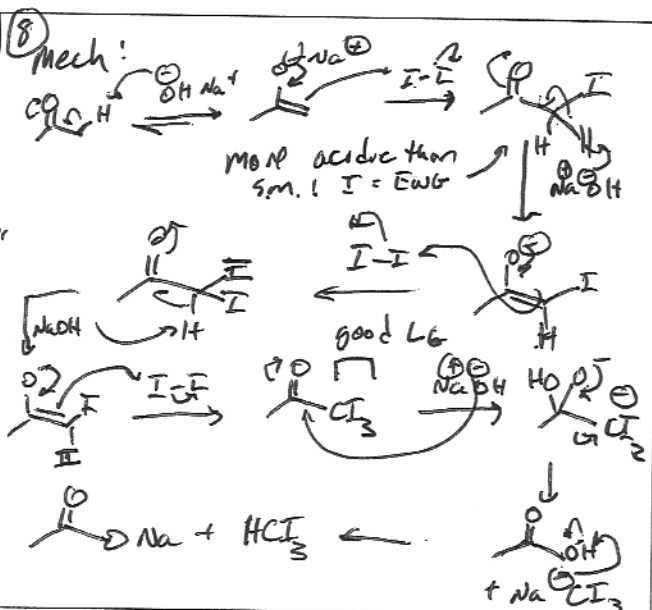 8
Mech:
O H ⊖OH Na+
O⊖ Na⊕
I-I
O I
H H
more acidic than
s.m.! I = EWG
⊕Na ⊖OH
O I I H
I-I
O⊖ I H
NaOH
good LG
O I I
I-I
O CI3
⊕Na ⊖OH
HO O⊖ CI3
O O Na + HCI3
O OH
+ Na ⊖CI3